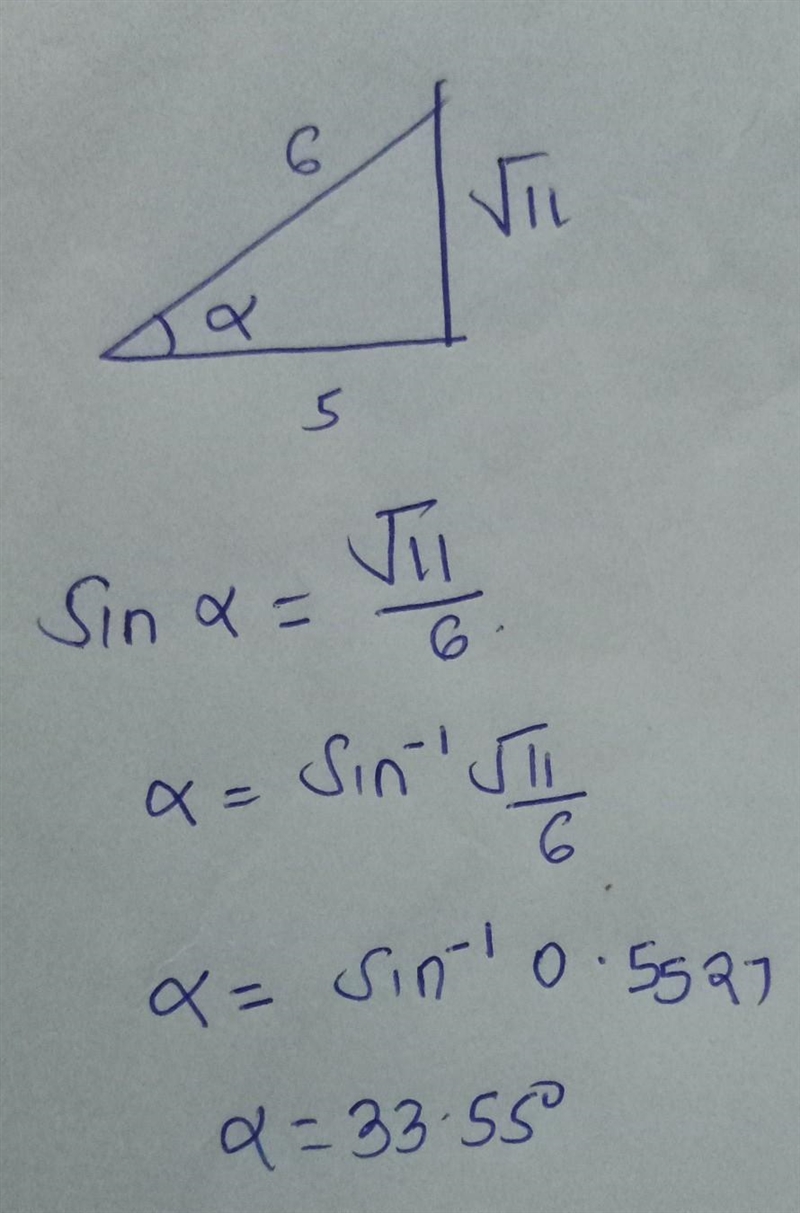 6
√11
α
5
Sin α = √11/6
α = Sin⁻¹ √11/6
α = Sin⁻¹ 0.5527
α = 33.55°